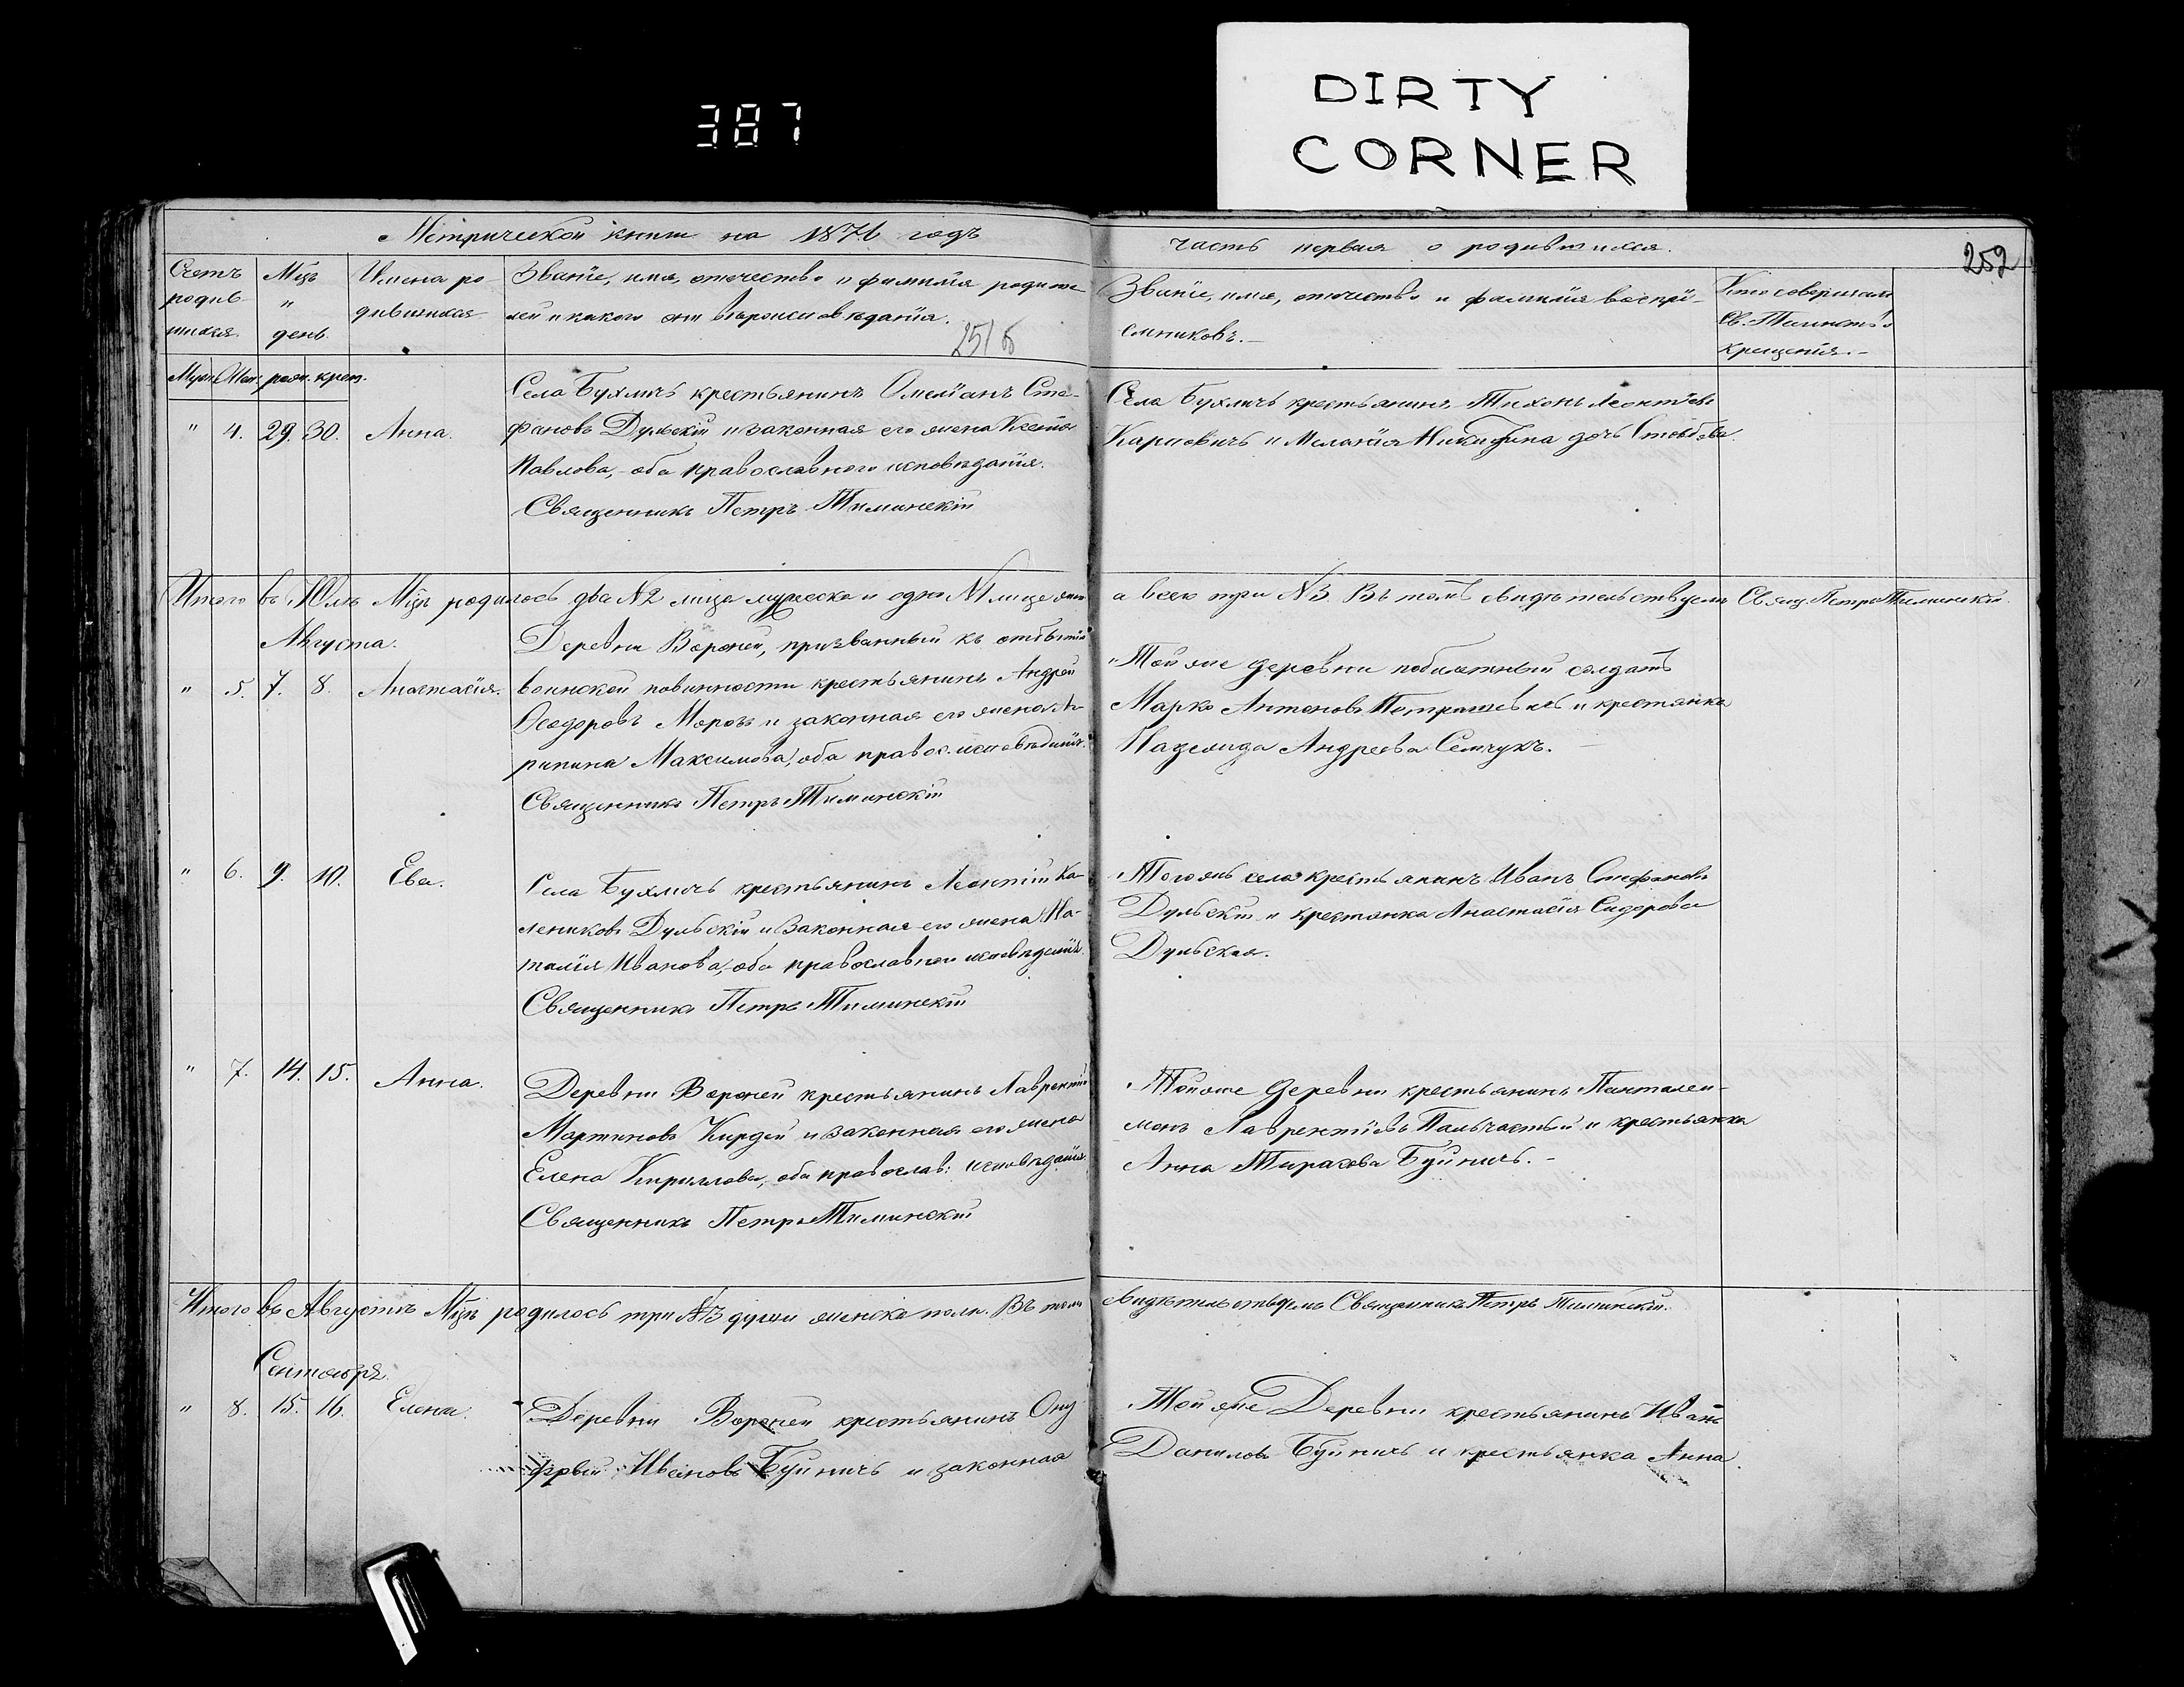 DIRTY
CORNER
387
Метрической книги на 1876 годъ
часть первая о родившихся.
252
Счетъ родив-шихся.
Мцъ и день.
Имена ро-дившихся
Званіе, имя, отечество и фамилія родите-
лей и какого они вѣроисповѣданія.
Званіе, имя, отечество и фамилія воспрі-
емниковъ.
Кто совершалъ
Св. Таинство
крещенія.-
251 б
Муж. Жен. рожд. крещ.
" 4. 29. 30. Анна.
Села Бухличъ крестьянинъ Омеліанъ Сте-
фановъ Дульскій и законная его жена Ксенія
Павлова, оба православнаго исповѣданія.
Священникъ Петръ Тиминскій
Села Бухличъ крестьянинъ Тихонъ Леонтіевъ
Карповичъ и Меланія Никитина дочь
Итого въ Юлѣ Мцѣ родилось два №2 лица мужеска и одно №1 лице жен
а всего три №3 Въ томъ свидѣтельствуемъ Свящ. Петръ Тиминскій.
Августа.
" 5. 7. 8. Анастасія.
Деревни Вороней, призванный къ отбытію
воинской повинности крестьянинъ Андрей
Ѳеодоровъ Морозъ и законная его жена Аг-
рипина Максимова, оба правос. исповѣданія.
Священникъ Петръ Тиминскій
Той же деревни побилетный солдатъ
Марко Антоновъ Петрашевичъ и крестянка
Андреева Семчукъ.
" 6. 9. 10. Ева.
Села Бухличъ крестьянинъ Леонтій Ка-
лениковъ Дульскій и законная его жена На-
талія Иванова, оба православнаго исповѣданія.
Священникъ Петръ Тиминскій
Того жъ села крестьянинъ Иванъ Стефановъ
Дульскій и крестянка Анастасія Сидорова
Дульская.
" 7. 14. 15. Анна.
Деревни Вороней крестьянинъ Лаврентій
Мартиновъ Кирдей и законная его жена
Елена Кириллова, оба православ: исповѣданія.
Священникъ Петръ Тиминскій
Той же деревни крестьянинъ Пантелеи-
монъ Лаврентіевъ Пальчастый и крестьянка
Анна Тарасова Буйничъ.-
Итого въ Августѣ Мцѣ родилось три №3 души женска пола. Въ томъ
свидѣтельствуемъ Священникъ Петръ Тиминскій.
Сентября.
" 8. 15. 16. Елена.
Деревни Вороней крестьянинъ Ону
фрей Ивановъ Буйничъ и законная
Той же Деревни крестьянинъ Иванъ
Даниловъ Буйничъ и крестьянка Анна